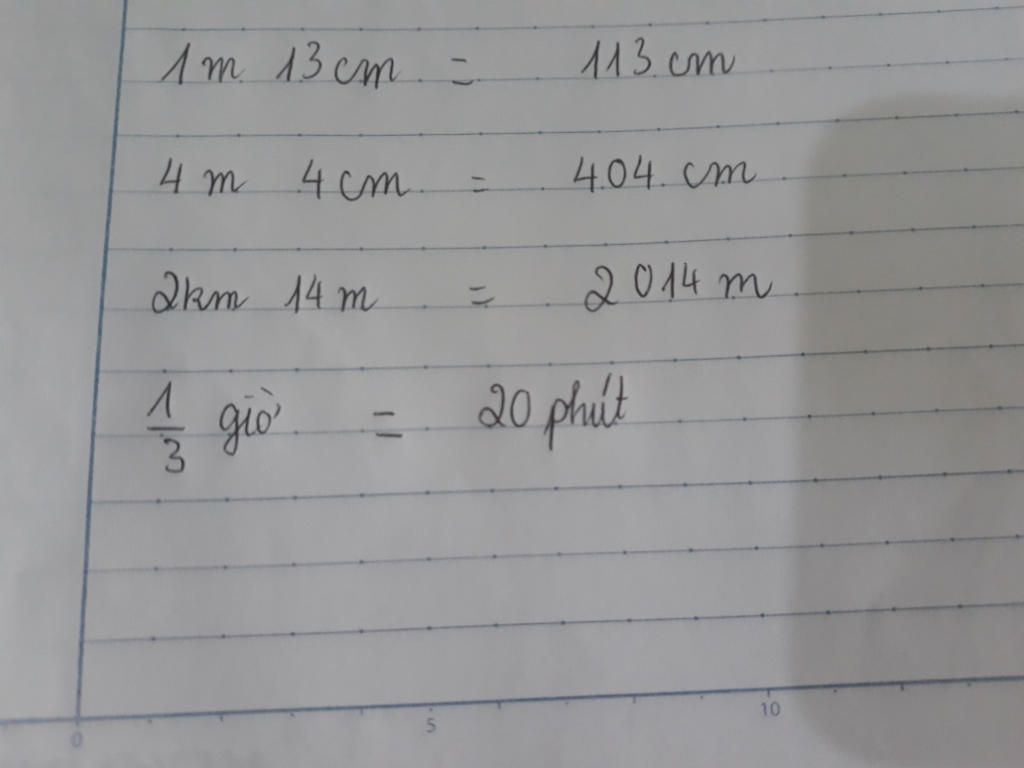 1m 13cm = 113cm
4m 4cm = 404 cm
2km 14m = 2014 m
1/3 giờ = 20 phút
0 5 10